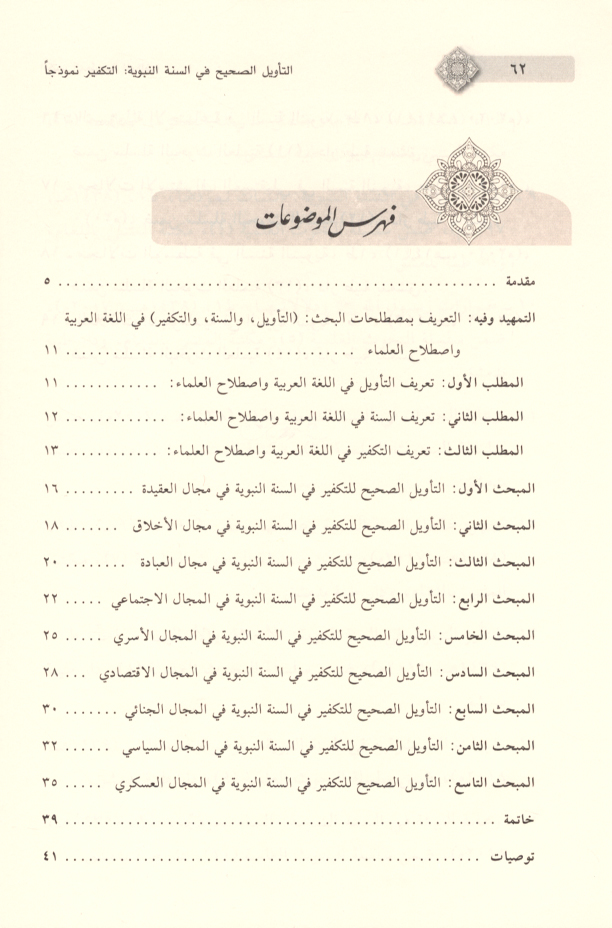 ٦٢ التأويل الصحيح في السنة النبوية: التكفير نموذجاً
فهرس الموضوعات
مقدمة ............ ٥
التمهيد وفيه: التعريف بمصطلحات البحث: (التأويل، والسنة، والتكفير) في اللغة العربية
واصطلاح العلماء ............ ١١
المطلب الأول: تعريف التأويل في اللغة العربية واصطلاح العلماء: ............ ١١
المطلب الثاني: تعريف السنة في اللغة العربية واصطلاح العلماء: ............ ١٢
المطلب الثالث: تعريف التكفير في اللغة العربية واصطلاح العلماء: ............ ١٣
المبحث الأول: التأويل الصحيح للتكفير في السنة النبوية في مجال العقيدة ......... ١٦
المبحث الثاني: التأويل الصحيح للتكفير في السنة النبوية في مجال الأخلاق ....... ١٨
المبحث الثالث: التأويل الصحيح للتكفير في السنة النبوية في مجال العبادة ........ ٢٠
المبحث الرابع: التأويل الصحيح للتكفير في السنة النبوية في المجال الاجتماعي ..... ٢٢
المبحث الخامس: التأويل الصحيح للتكفير في السنة النبوية في المجال الأسري ..... ٢٥
المبحث السادس: التأويل الصحيح للتكفير في السنة النبوية في المجال الاقتصادي ... ٢٨
المبحث السابع: التأويل الصحيح للتكفير في السنة النبوية في المجال الجنائي ....... ٣٠
المبحث الثامن: التأويل الصحيح للتكفير في السنة النبوية في المجال السياسي ...... ٣٢
المبحث التاسع: التأويل الصحيح للتكفير في السنة النبوية في المجال العسكري ..... ٣٥
خاتمة ............ ٣٩
توصيات ............ ٤١